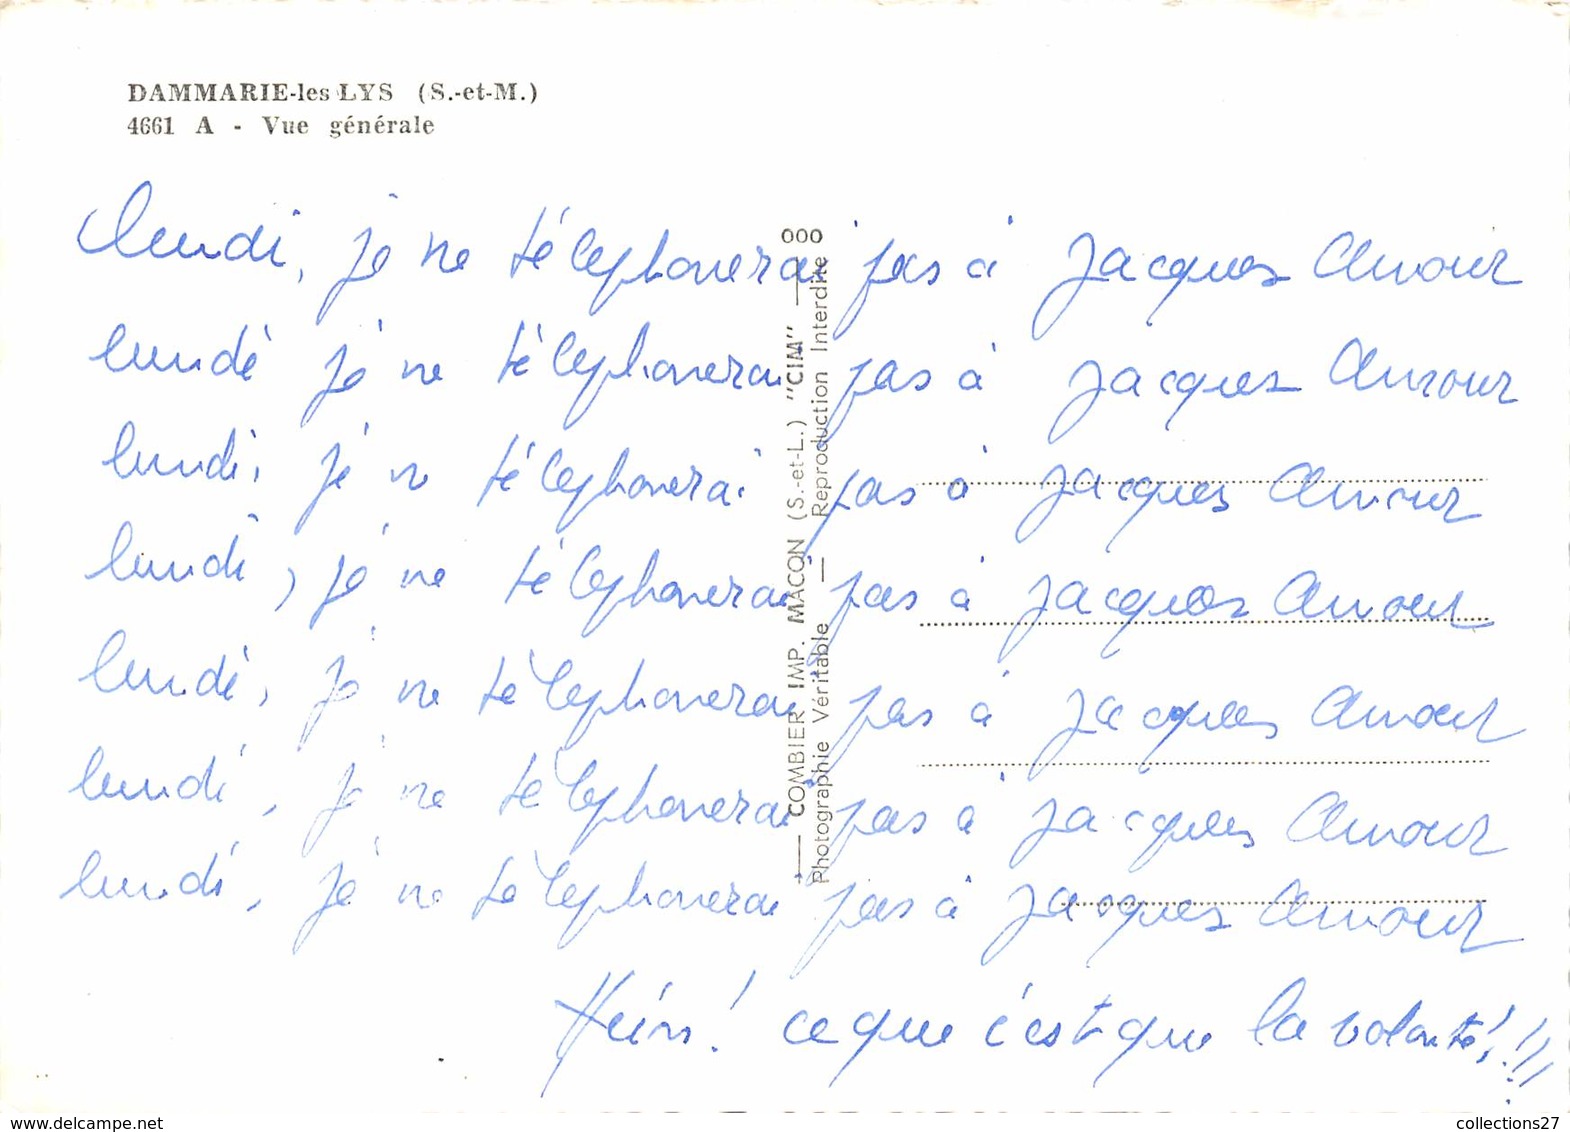 DAMMARIE-les LYS (S.-et-M.)
4661 A - Vue générale
lundi, je ne téléphonerai pas à Jacques Amour
lundi je ne téléphonerai pas à Jacques Amour
lundi, je ne téléphonerai pas à Jacques Amour
lundi, je ne téléphonerai pas à Jacques Amour
lundi, je ne téléphonerai pas à Jacques Amour
lundi, je ne téléphonerai pas à Jacques Amour
lundi, je ne téléphonerai pas à Jacques Amour
Hein! ce que c'est que la volonté!!!!
000
COMBIER IMP. MACON (S.-et-L.) "CIM"
Photographie Véritable — Reproduction Interdite
www.delcampe.net
collections27